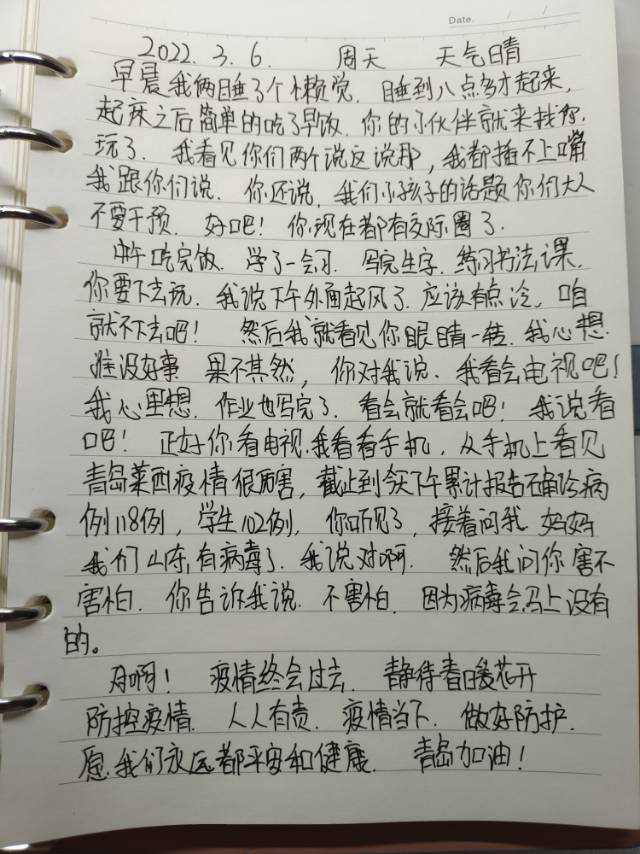 Date. / /
2022.3.6. 周天 天气晴
早晨我俩睡了个懒觉. 睡到八点多才起来,
起床之后简单的吃了早饭. 你的小伙伴就来找你
玩了. 我看见你们两个说这说那, 我都插不上嘴
我跟你们说. 你还说. 我们小孩子的话题你们大人
不要干预. 好吧! 你现在都有交际圈了.
中午吃完饭. 学了一会习. 写完生字. 练习书法课.
你要下去玩. 我说下午外面起风了. 应该有点冷. 咱
就不下去吧! 然后我就看见你眼睛一转. 我心想.
准没好事 果不其然, 你对我说. 我看会电视吧!
我心里想. 作业也写完了. 看会就看会吧! 我说看
吧! 正好你看电视.我看看手机. 从手机上看见
青岛莱西疫情很厉害, 截止到今天下午累计报告确诊病
例118例, 学生102例. 你听见了, 接着问我 妈妈
我们山东有病毒了. 我说对啊. 然后我问你害不
害怕. 你告诉我说. 不害怕. 因为病毒会马上没有
的。
对啊! 疫情终会过去. 静待春暖花开
防控疫情. 人人有责. 疫情当下. 做好防护.
愿我们永远都平安和健康. 青岛加油!